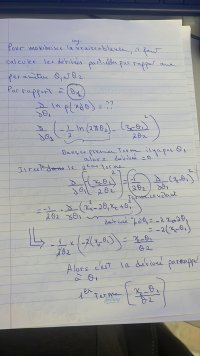 Pour maximiser la vraisemblance, il faut
calculer les dérivées partielles par rapport aux
paramètres θ1 et θ2
Par rapport à θ1
∂/∂θ1 ln p(x|θ) = ??
∂/∂θ1 (-1/2 ln(2πθ2) - (x-θ1)²/2θ2)
Dans ce premier terme il y a pas θ1
alors dérivée = 0
2ème terme
∂/∂θ1 (-(x-θ1)²/2θ2) = -1/2θ2 ∂/∂θ1 (x-θ1)²
= -1/2θ2 ∂/∂θ1 (x² - 2θ1x + θ1²)
-2x+2θ1
= -2(x-θ1)
-1/2θ2 × (-2(x-θ1)) = x-θ1/θ2
Alors c'est la dérivée par rapport
à θ1
1er terme [x-θ1/θ2]